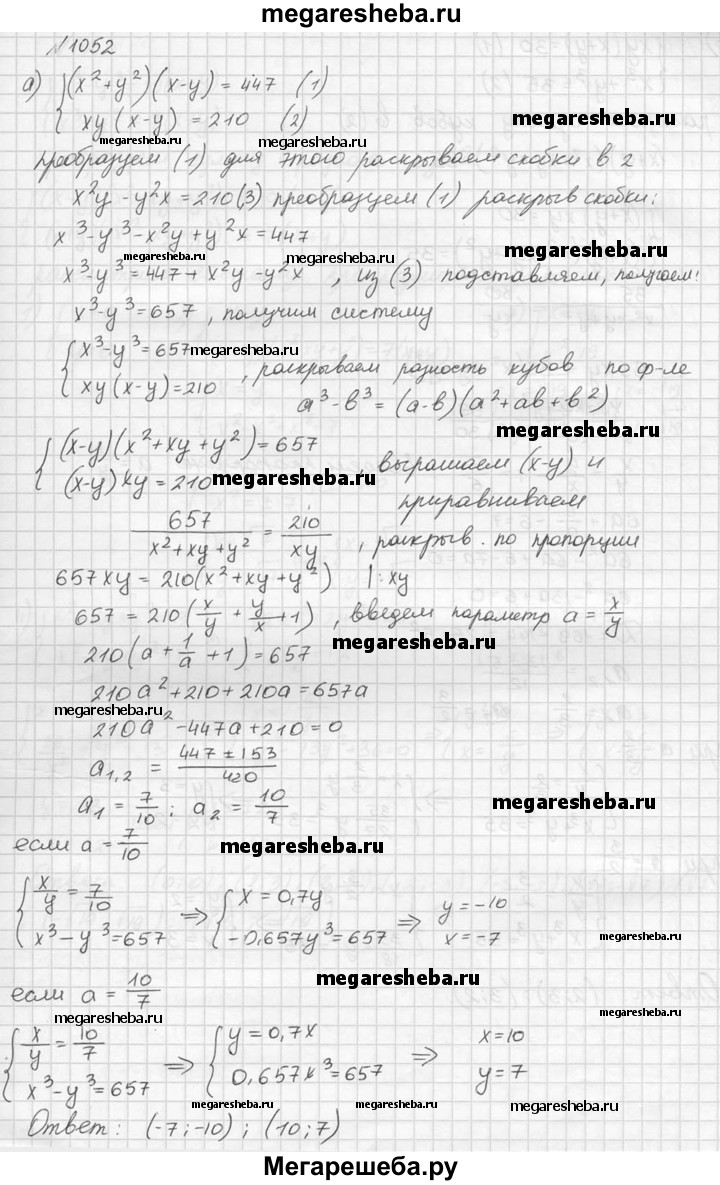 megaresheba.ru
№1052
а) { (x²+y²)(x-y) = 447 (1)
xy(x-y) = 210 (2)
megaresheba.ru
megaresheba.ru
megaresheba.ru
преобразуем (1) для этого раскрываем скобки в 2
x²y - y²x = 210 (3) преобразуем (1) раскрыв скобки:
x³-y³-x²y+y²x = 447
megaresheba.ru
megaresheba.ru
megaresheba.ru
x³-y³ = 447 + x²y - y²x , из (3) подставляем, получаем:
x³-y³ = 657 , получим систему
{ x³-y³ = 657
megaresheba.ru
xy(x-y) = 210 , раскрываем разность кубов по ф-ле
a³-b³ = (a-b)(a²+ab+b²)
megaresheba.ru
{ (x-y)(x²+xy+y²) = 657
(x-y)xy = 210 , выражаем (x-y) и
megaresheba.ru
приравниваем
657/(x²+xy+y²) = 210/xy , раскрыв. по пропорции
657xy = 210(x²+xy+y²) |:xy
657 = 210(x/y + y/x + 1) , введем параметр a = x/y
megaresheba.ru
210(a + 1/a + 1) = 657
210a²+210+210a = 657a
megaresheba.ru
210a² - 447a + 210 = 0
a₁,₂ = (447 ± 153)/420
a₁ = 7/10 ; a₂ = 10/7
megaresheba.ru
если a = 7/10
megaresheba.ru
{ x/y = 7/10 ⇒ { x = 0,7y ⇒ y = -10
x³-y³ = 657 -0,657y³ = 657 x = -7
megaresheba.ru
если a = 10/7
megaresheba.ru
megaresheba.ru
megaresheba.ru
{ x/y = 10/7 ⇒ { y = 0,7x ⇒ x = 10
x³-y³ = 657 0,657x³ = 657 y = 7
megaresheba.ru
megaresheba.ru
megaresheba.ru
Ответ: (-7; -10) ; (10; 7)
Мегарешеба.ру